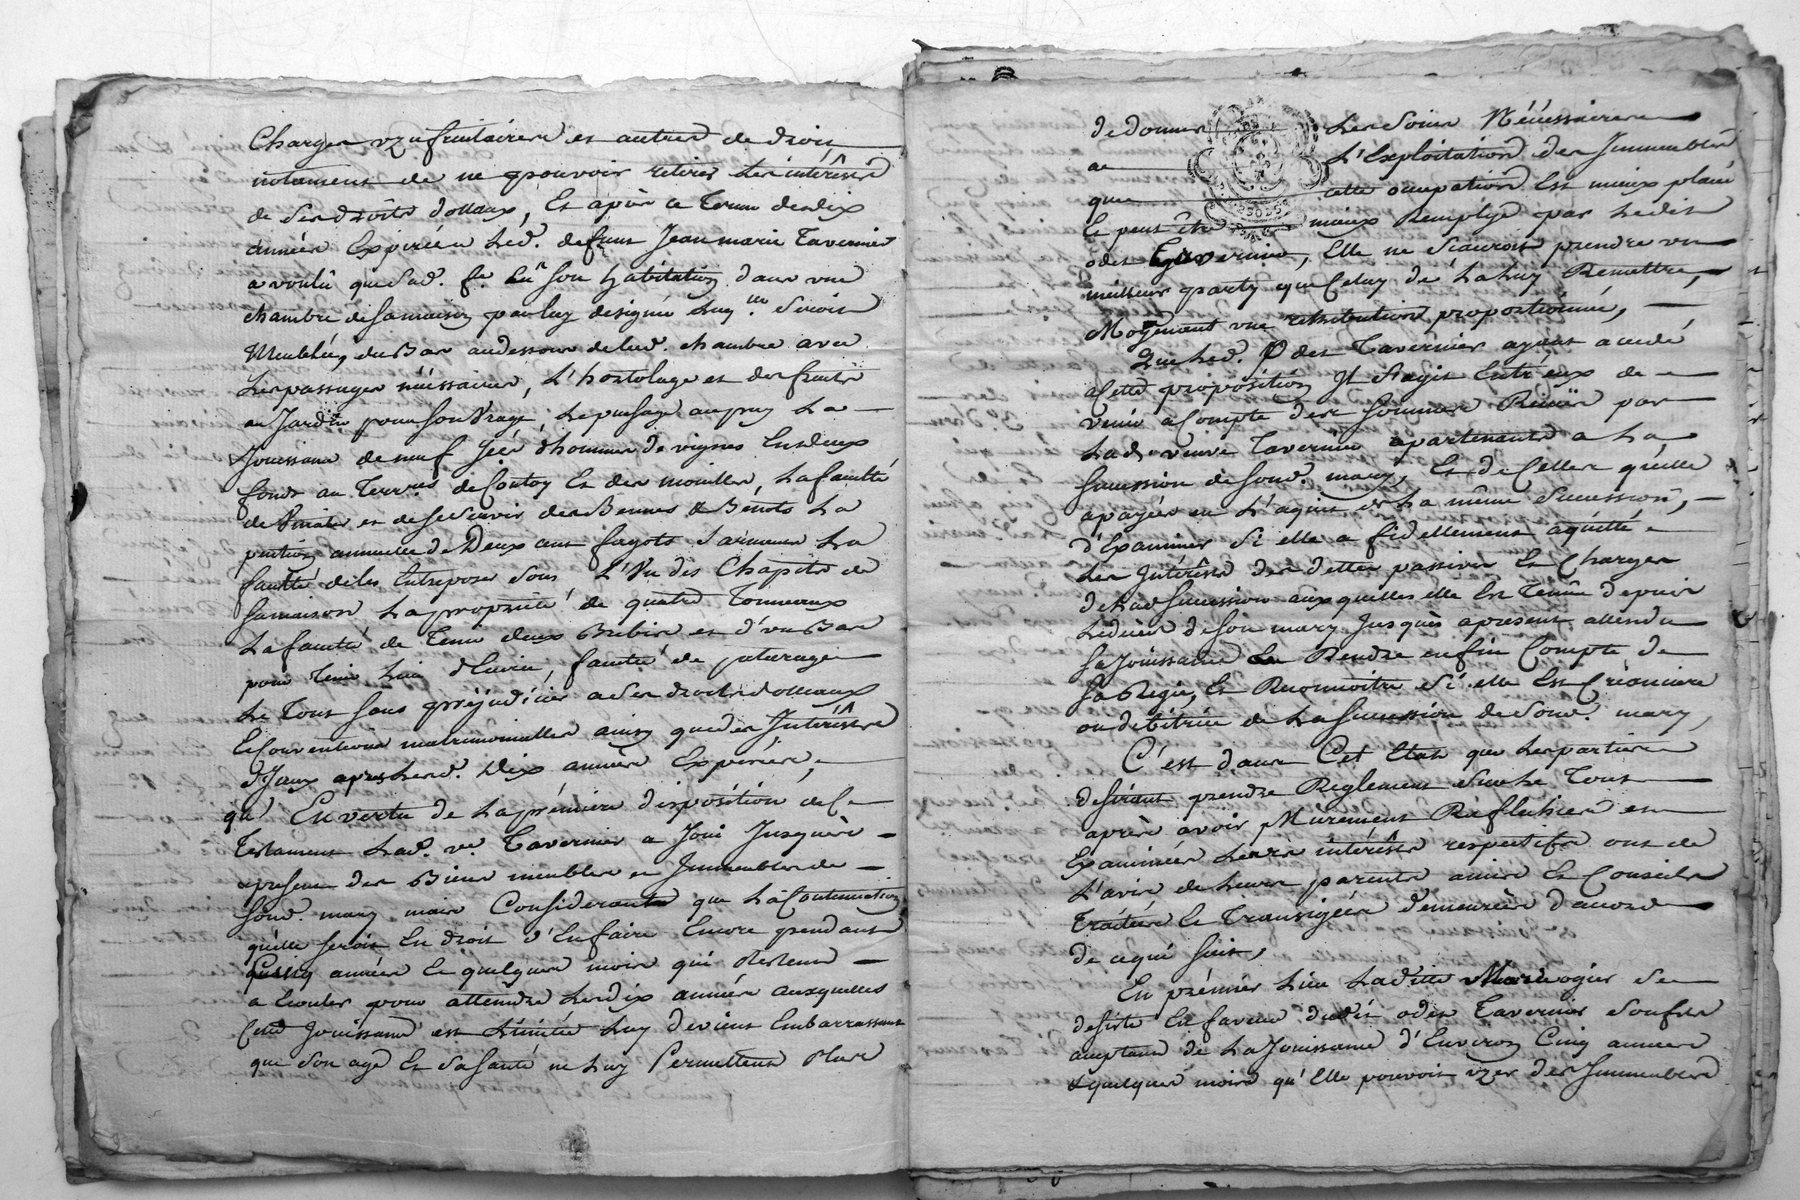 Charges uzufruitaires et autres de droit
notament de ne pouvoir retirer les intérêsts
de ses droits dottaux, Et après ce Terme de dix
années Expirées Led. defunt Jean marie Tavernier
a voulû que sad. fe. Eu son habitation dans une
chambre de sa maison par luy designée Luy seroit
Meublée, du Bas au dessous de lad. chambre avec
Les passages nécessaires, L'hortolage et des fruits
au Jardin pour son Usage, Le puisage au puy La
Jouissance de neuf hommés de vignes En deux
fonds au Terres de Contoy Et des mouilles, La faculté
de et de se servir des Bennes & Benots La
annuelle de Deux cent fagots Sarments La
faculté de les Entreposer sous Chapits de
sa maison La propriété de quatre Tonneaux
La faculté de Tenir deux Brebis et d'un Bas
pour Tenir Lieu d'Ecurie, faculté de paturage
Le Tout sans préjudicier a ses droits dotteaux
Et Conventions matrimonialles ainsy que des Intérêsts
d'Iceux apres Lesd. Dix années Expirées,
qu' En vertu de La prémière disposition de Ce
Testament Lad. ve. Tavernier a Joui Jusques à
present des Biens meubles et Immeubles de
sond. mary mais Considerant que La Continuation
qu'elle seroit En droit d'En faire Encore pendant
Cinq années Et quelques mois qui Restent
a Ecouler pour atteindre Les dix années auxquelles
Cette Jouissance est Limitée Luy devient Embarrassant
que son age Et sa santé ne Luy Permettent plus
de donner Les soins Nécessaires
a L'Exploitation des Immeubles
que cette occupation Est mieux placée
Et peut être mieux Remplye par Ledit
odet Tavernier, Elle ne sçauroit prendre un
meilleur party que Celuy de La Luy Remettre,
Moyenant une retribution proportionnée,
Que Led. Sr odet Tavernier ayant accedé
a Cette proposition Il s'agit Entr'eux de
venir a Compte des sommes Reçües par
Lad. veuve Tavernier apartenants a La
succession de sond. mary, Et de Celles qu'elle
a payées en L'aquit de La même succession,
d'Examiner si elle a fidellement aquitté
Les Intérêsts des dettes passives Et Charges
de Lad succession auxquelles elle Est Tenüe depuis
Le décès de son mary Jusqués apresent attendu
sa Jouissance Rendre enfin Compte de
sa Régie, Et Reconnoitre si elle Est Créancière
ou debitrice de La succession de sond. mary,
C'est dans Cet Etat que Les parties
desirant prendre Reglement sur Le Tout
après avoir Mûrement Réfléchies et
Examinées Leurs intérêsts respectifs ont de
L'avis de Leurs parents amis Et Conseils
Traitées Et Transigées demeurées d'accord
de ce qui suit,
En prémier Lieu Laditte Marie ogier se
desiste En faveur dudit odet Tavernier
acceptant de La Jouissance d'Environ Cinq années
& quelques mois qu'Elle pouvoit uzer des Immeubles